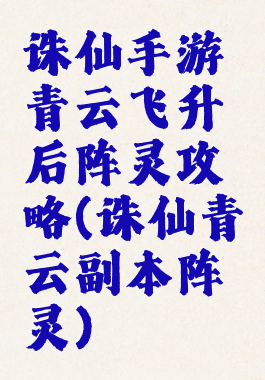 诛仙手游
青云飞升
后阵灵攻
略(诛仙青
云副本阵
灵)